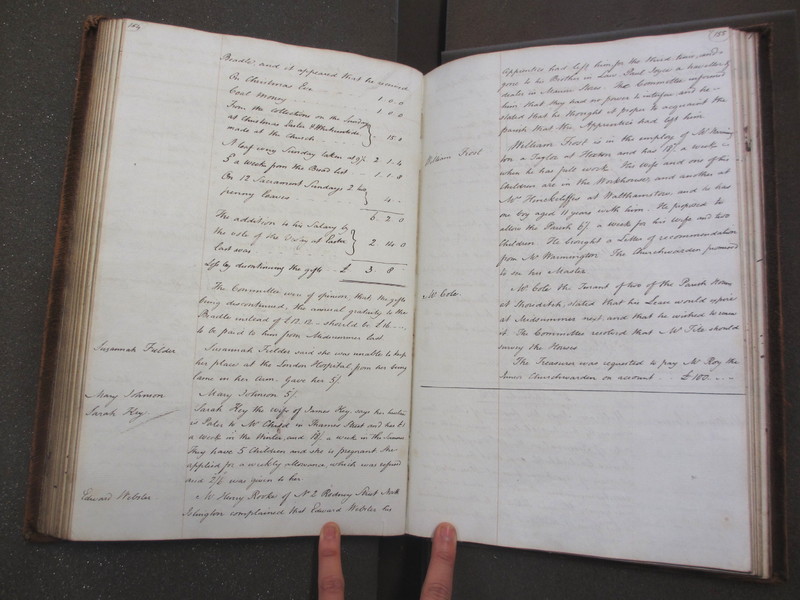 154
Beadle, and it appeared that he received
On Christmas Eve 1 . 0 . 0
Coal Money 1 . 0 . 0
From the collections on the Sundays
at Christmas Easter & Whitsuntide 15 . 0
made at the Church
A loaf every Sunday taken at 9½ 2 . 1 . 4
5d a week from the Bread list 1 . 1 . 8
On 12 Sacrament Sundays 2 two
penny loaves 4 . -
6 . 2 . 0
The addition to his Salary by
the vote of the Vestry at Easter 2 . 14 . 0
last was
Loss by discontinuing the gifts £ 3 . 8
The Committee were of opinion that the gifts
being discontinued, the annual gratuity to the
Beadle instead of £12.12 - should be £16
to be paid to him from Midsummer last.
Susannah Fielder Susannah Fielder said she was unable to keep
her place at the London Hospital from her being
lame in her Arm. Gave her 5/.
Mary Johnson Mary Johnson 5/.
Sarah Key Sarah Key the wife of James Key, says her husband
is Porter to Mr Child in Thames Street and has
a week in the Winter, and 18/. a week in the Summer
They have 5 Children and she is pregnant She
applied for a weekly allowance, which was refused
and 2/6 was given to her
Edward Webster Mr Henry Rooke of No 2 Rodney Street North
Islington complained that Edward Webster his
155
Apprentice had left him for the third time, and
gone to his Brother in Law Paul a
dealer in The Committee informed
him that they had no power to interfere and he
stated that he thought it proper to acquaint the
parish that the Apprentice had left him
William Frost William Frost is in the employ of Mr Warming
ton a Taylor at Hoxton and has 18/. a week
when he has full work. His wife and one of his
Children are in the Workhouse, and another at
Mrs Hinckcliffes at Walthamstow, and he has
one boy aged 11 years with him. He proposed to
allow the Parish 6/. a week for his wife and two
Children. He brought a Letter of recommendation
from Mr Warmington. The Churchwarden promised
to see his Master
Mr Cole Mr Cole the Tenant of two of the Parish Houses
at Shoreditch, stated that his Lease would expire
at Midsummer next and that he wished to renew
it. The Committee resolved that Mr Tite should
survey the Houses
The Treasurer was requested to pay Mr Roy the
Junior Churchwarden on account £100 . - . -